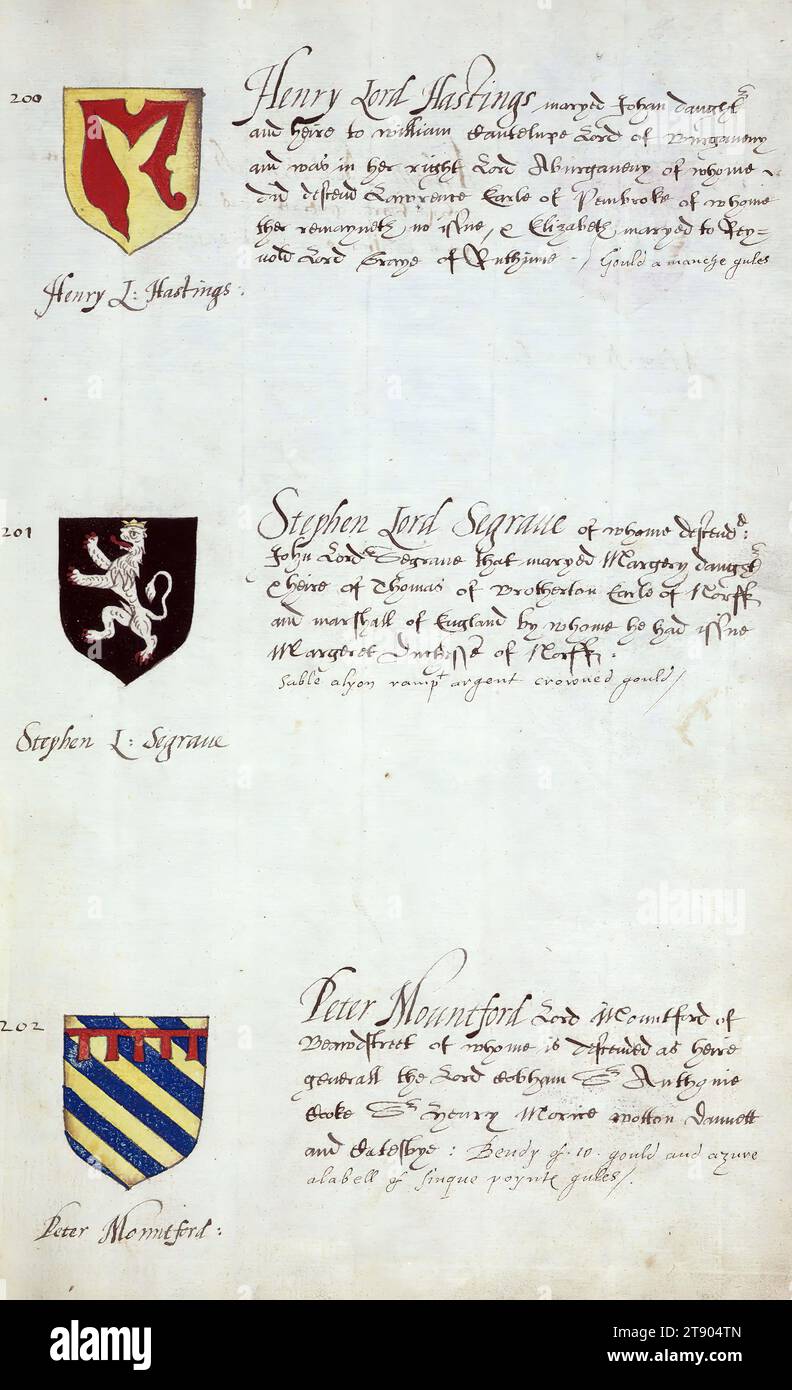 200
Henry Lord Hastings maryed Johan daught^r
and heire to william Cantelupe Lord of Burgaveny
and was in her right Lord Aburgaveny of whome
did descend Lawrence Earle of Pembroke of whome
ther remayneth no issue, & Elizabeth maryed to Rey=
nold Lord Graye of Ruthine - Gould a manche gules
Henry L: Hastings:
201
Stephen Lord Segraue of whome descend^d:
John Lord Segrave that maryed Margery daught^r
& heire of Thomas of Brotherton Earle of Norff
and marshall of England by whome he had issue
Margeret Duchesse of Norff.
Sable a lyon ramp^t argent crowned gould/
Stephen L: Segraue
202
Peter Mountford Lord Mountford of
of whome is descended as heire
generall the Lord Cobham S^r Anthonie
Cooke S^r Henry Morice wotton Dannett
and Catesbye: Bendy of .10. gould and azure
a labell of sinque poynte gules/.
Peter Mountford:
alamy
Image ID: 2T904TN
www.alamy.com